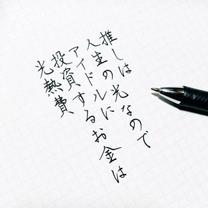 推しは光なので
人生のルに
アイドルるお金は
投資する
光熱費